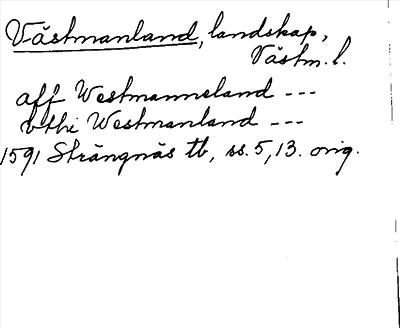 Västmanland, landskap,
Västm. l.
aff Westmanneland ---
vthi Westmanland ---
1591 Strängnäs tb, ss. 5, 13. orig.